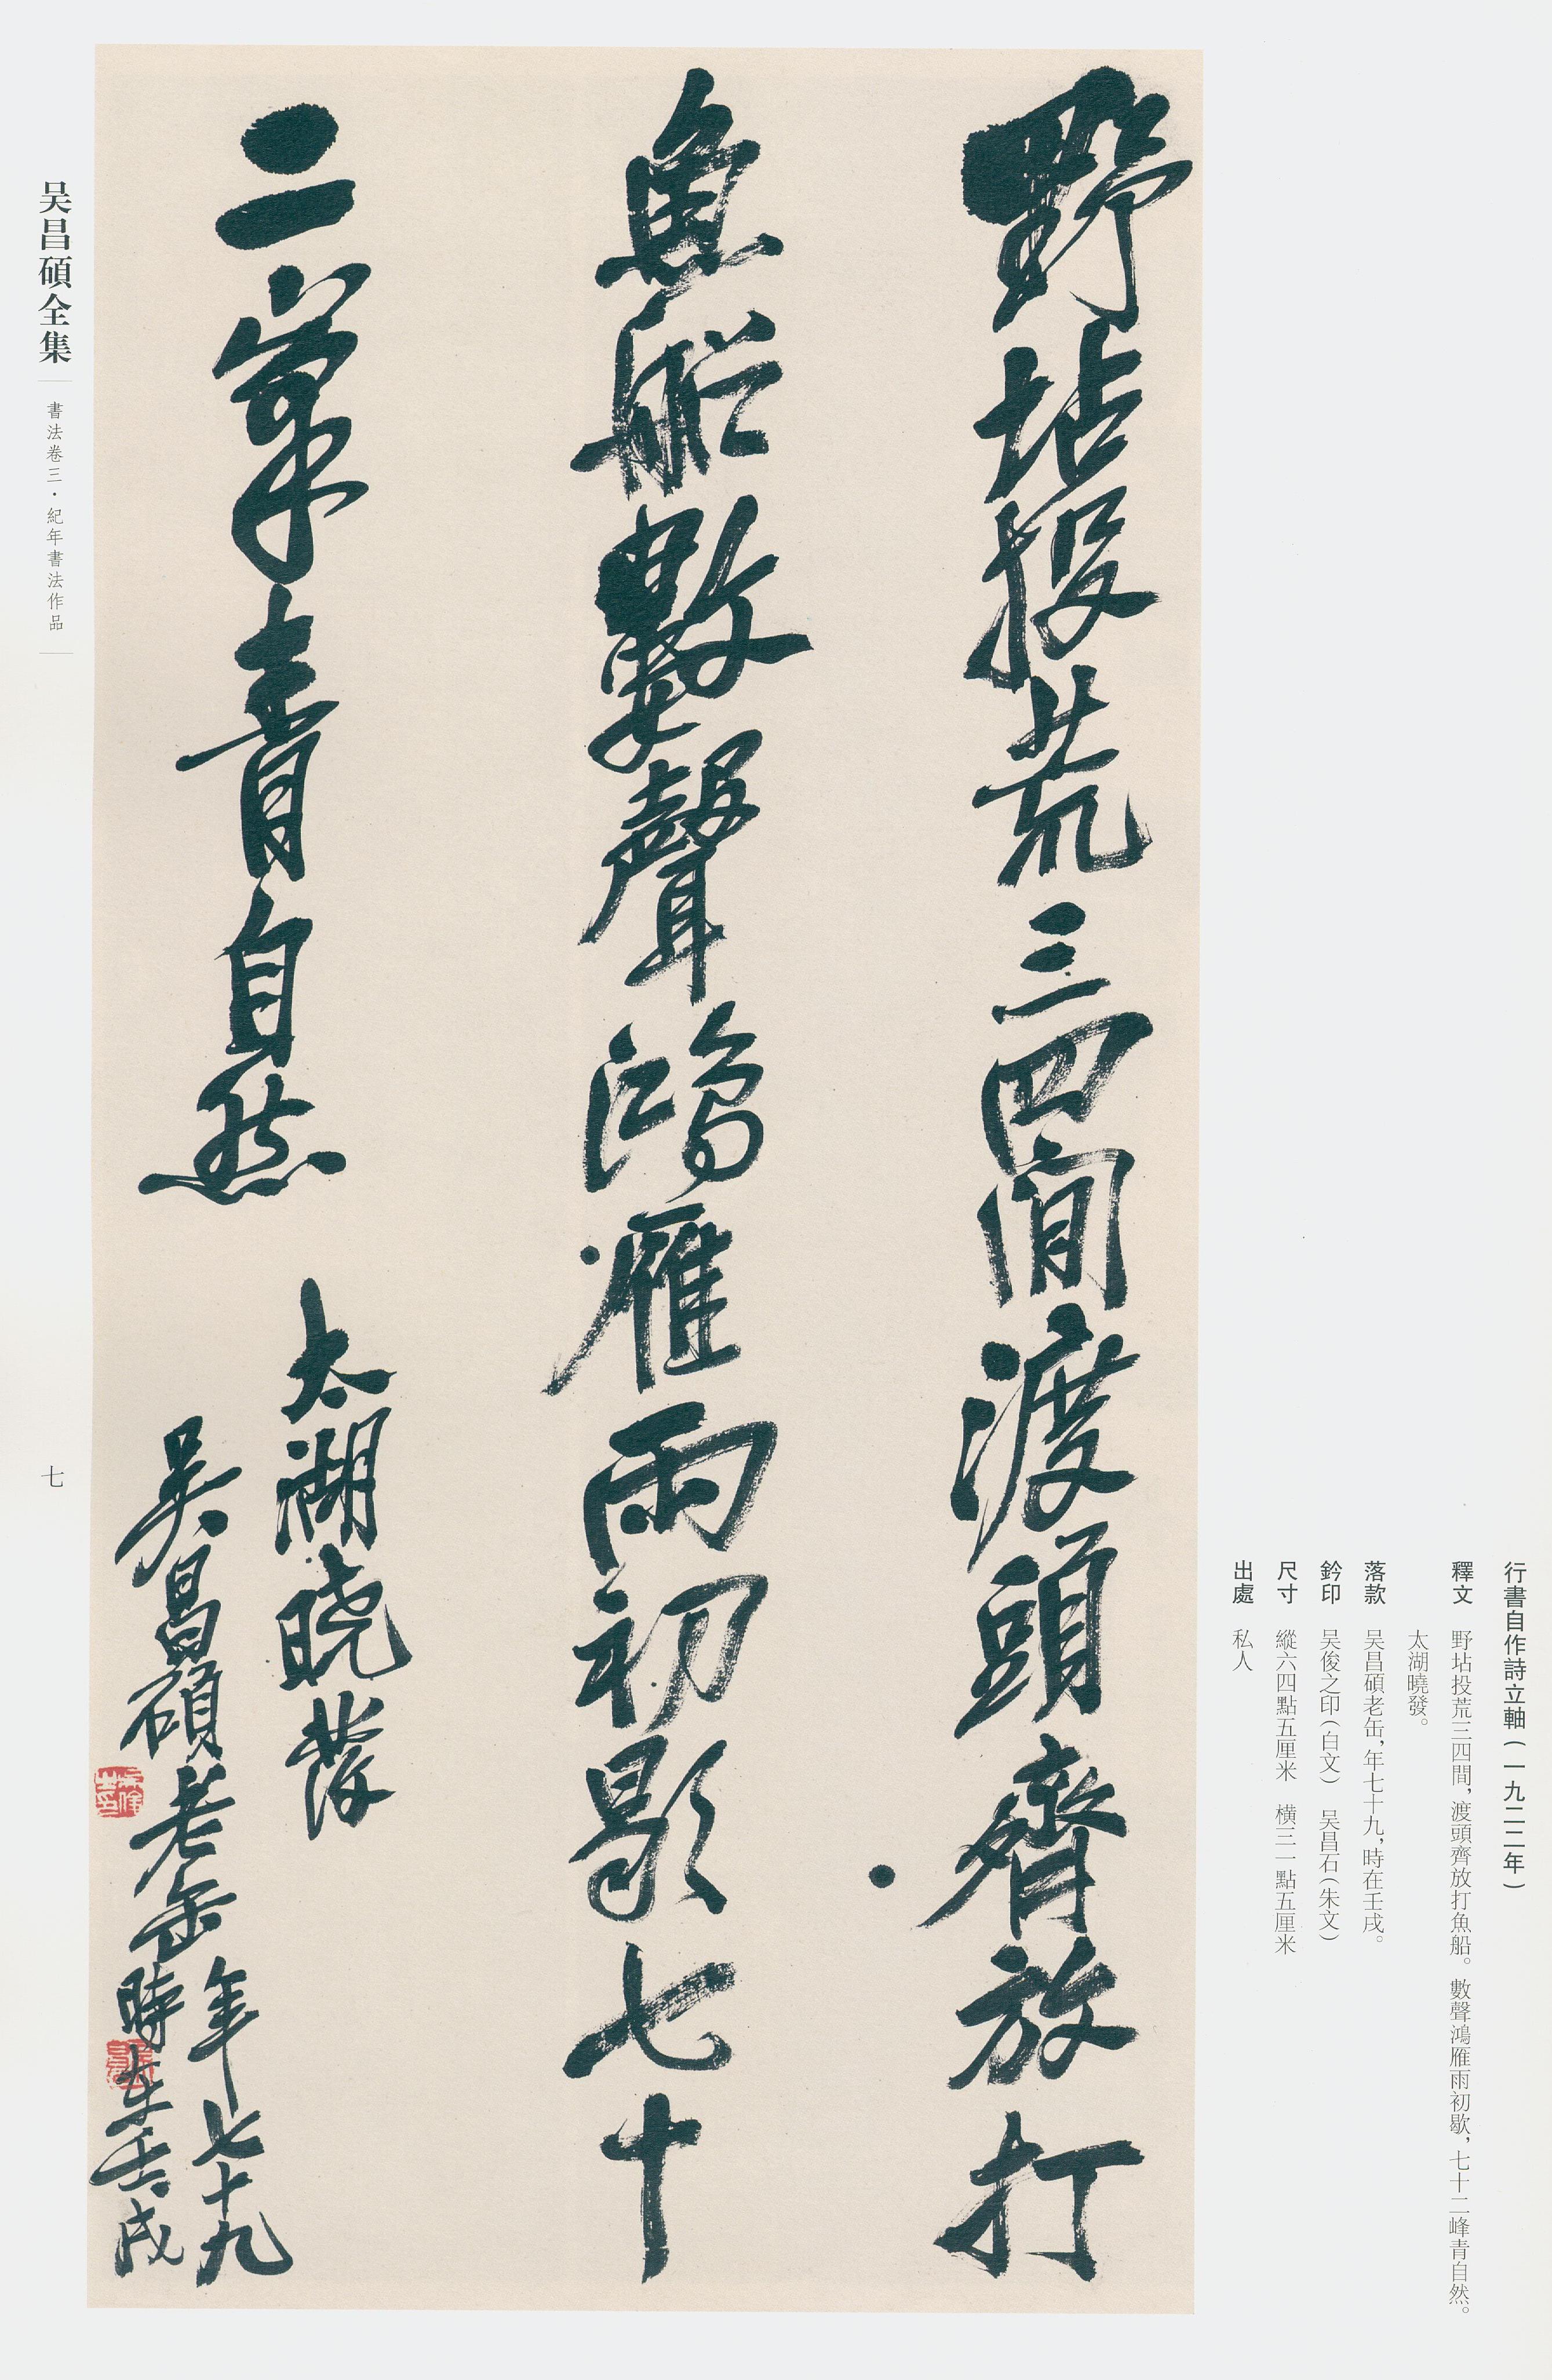 行書自作詩立軸(一九二二年)
釋文 野坫投荒三四間，渡頭齊放打魚船。數聲鴻雁雨初歇，七十二峰青自然。
太湖曉發。
落款 吴昌碩老缶，年七十九，時在壬戌。
鈐印 吴俊之印(白文) 吴昌石(朱文)
尺寸 縱六四點五厘米 橫三一點五厘米
出處 私人
野坫投荒三四間渡頭齊放打
魚船數聲鴻雁雨初歇七十
二峯青自然
太湖曉發
吴昌碩老缶
年七十九
時在壬戌
吴昌碩全集
書法卷三·紀年書法作品
七